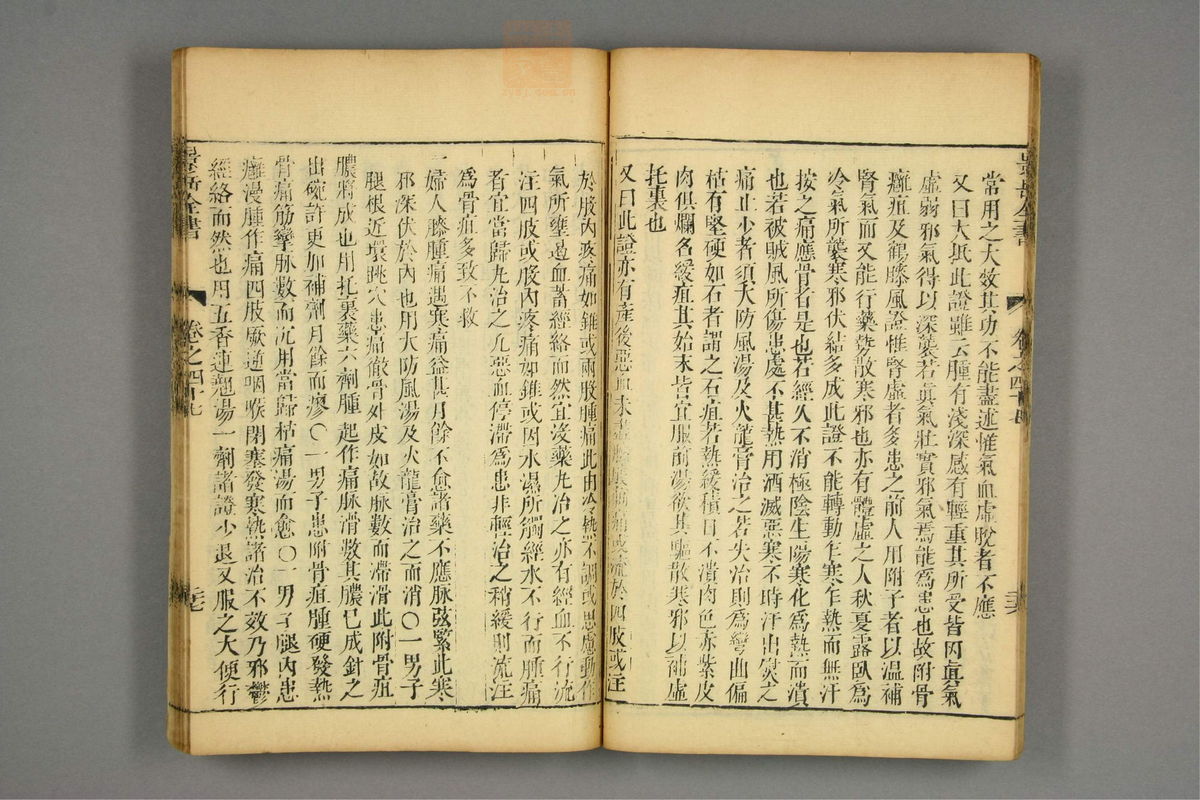 常用之大效其功不能盡述惟氣血虛脫者不應
又曰大抵此證雖云腫有淺深感有輕重其所受皆因眞氣
虛弱邪氣得以深襲若眞氣壯實邪氣焉能爲患也故附骨
癰疽及鶴膝風證惟腎虛者多患之前人用附子者以温補
腎氣而又能行藥勢散寒邪也亦有體虛之人秋夏露臥爲
冷氣所襲寒邪伏結多成此證不能轉動乍寒乍熱而無汗
按之痛應骨者是也若經久不消極陰生陽寒化爲熱而潰
也若被賊風所傷患處不甚熱用洒滅惡寒不時汗出熨之
痛止少者須大防風湯及火龍膏治之若失治則爲彎曲偏
枯有堅硬如石者謂之石疽若熱緩積日不潰肉色赤紫皮
肉俱爛名緩疽其始末皆宜服前湯欲其驅散寒邪以補虛
托裏也
又曰此證亦有產後惡血未盡於四肢或注
於股內疼痛如錐或兩股腫痛此由冷熱不調或思慮動作
氣所壅遏血蓄經絡而然宜沒藥丸治之亦有經血不行流
注四肢或股內疼痛如錐或因水濕所觸經水不行而腫痛
者宜當歸丸治之凡惡血停滯爲患非輕治之稍緩則流注
爲骨疽多致不救
一婦人膝腫痛遇寒痛益甚月餘不愈諸藥不應脉弦緊此寒
邪深伏於內也用大防風湯及火龍膏治之而消〇一男子
腿根近環跳穴患痛徹骨外皮如故脉數而滯滑此附骨疽
膿將成也用托裏藥六劑腫起作痛脉滑數其膿已成針之
出碗許更加補劑月餘而瘳〇一男子患附骨疽腫硬發熱
骨痛筋攣脉數而沉用當歸枯痛湯而愈〇一男子腿內患
癰漫腫作痛四肢厥逆咽喉閉塞發寒熱諸治不效乃邪鬱
經絡而然也用五香連翹湯一劑諸證少退又服之大便行
景岳全書
卷之四十七
景岳全書